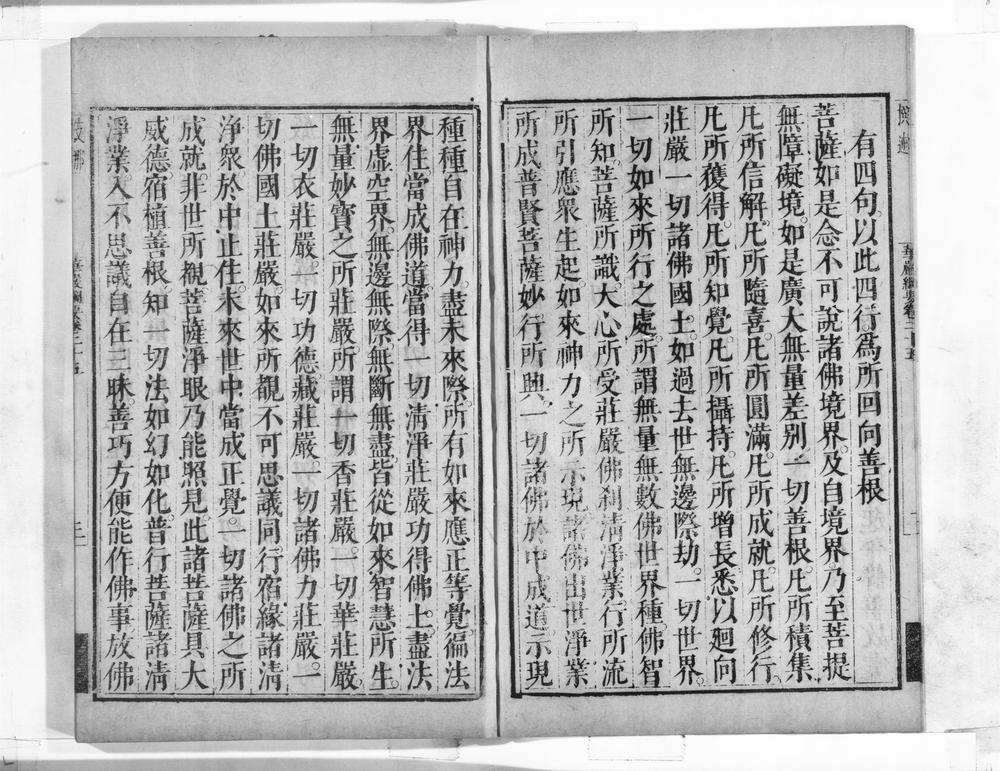 有四句以此四行爲所回向善根
菩薩如是念不可說諸佛境界及自境界乃至菩提
無障礙境如是廣大無量差別一切善根凡所積集
凡所信解凡所隨喜凡所圓滿凡所成就凡所修行
凡所獲得凡所知覺凡所攝持凡所增長悉以迴向
莊嚴一切諸佛國土如過去世無邊際劫一切世界
一切如來所行之處所謂無量無數佛世界種佛智
所知菩薩所識大心所受莊嚴佛刹清淨業行所流
所引應衆生起如來神力之所示現諸佛出世淨業
所成普賢菩薩妙行所興一切諸佛於中成道示現
種種自在神力盡未來際所有如來應正等覺徧法
界住當成佛道當得一切清淨莊嚴功得佛土盡法
界虛空界無邊無際無斷無盡皆從如來智慧所生
無量妙寶之所莊嚴所謂一切香莊嚴一切華莊嚴
一切衣莊嚴一切功德藏莊嚴一切諸佛力莊嚴一
切佛國土莊嚴如來所覩不可思議同行宿緣諸清
淨衆於中止住未來世中當成正覺一切諸佛之所
成就非世所覩菩薩淨眼乃能照見此諸菩薩具大
威德宿植善根知一切法如幻如化普行菩薩諸清
淨業入不思議自在三昧善巧方便能作佛事放佛
華嚴綱要卷二十五
華嚴綱要卷二十五